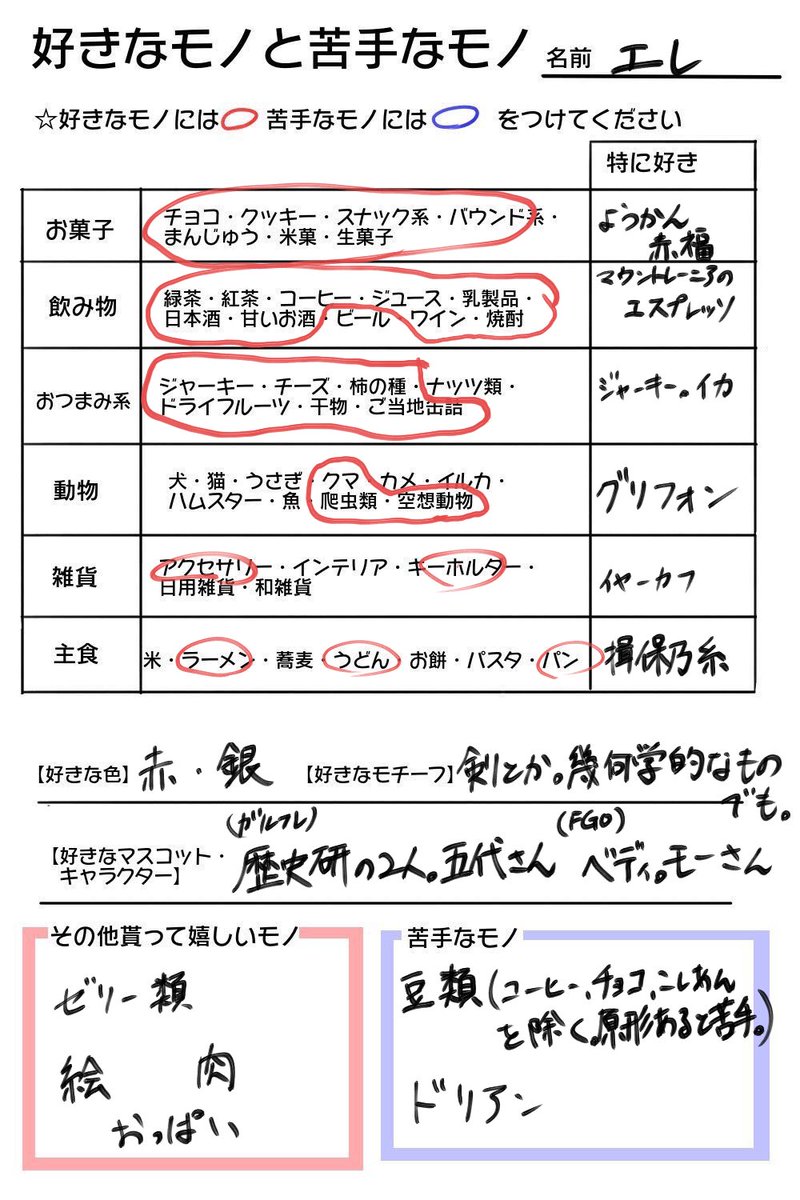 好きなモノと苦手なモノ 名前 エレ
☆好きなモノには 苦手なモノには をつけてください
特に好き
お菓子
チョコ・クッキー・スナック系・パウンド系・
まんじゅう・米菓・生菓子
ようかん
赤福
飲み物
緑茶・紅茶・コーヒー・ジュース・乳製品・
日本酒・甘いお酒・ビール ワイン・焼酎
マウントレーニアの
エスプレッソ
おつまみ系
ジャーキー・チーズ・柿の種・ナッツ類・
ドライフルーツ・干物・ご当地缶詰
ジャーキー。イカ
動物
犬・猫・うさぎ・クマ・カメ・イルカ・
ハムスター・魚・爬虫類・空想動物
グリフォン
雑貨
アクセサリー・インテリア・キーホルダー・
日用雑貨・和雑貨
イヤーカフ
主食
米・ラーメン・蕎麦・うどん・お餅・パスタ・パン
揖保乃糸
【好きな色】 赤・銀 【好きなモチーフ】 剣とか。幾何学的なもの
でも。
(ガルフレ) (FGO)
【好きなマスコット・
キャラクター】 歴史研の2人。五代さん ベディ。モーさん
その他貰って嬉しいモノ
ゼリー類
絵 肉
おっぱい
苦手なモノ
豆類(コーヒー、チョコ、こしあん
を除く。原形あると苦手。)
ドリアン